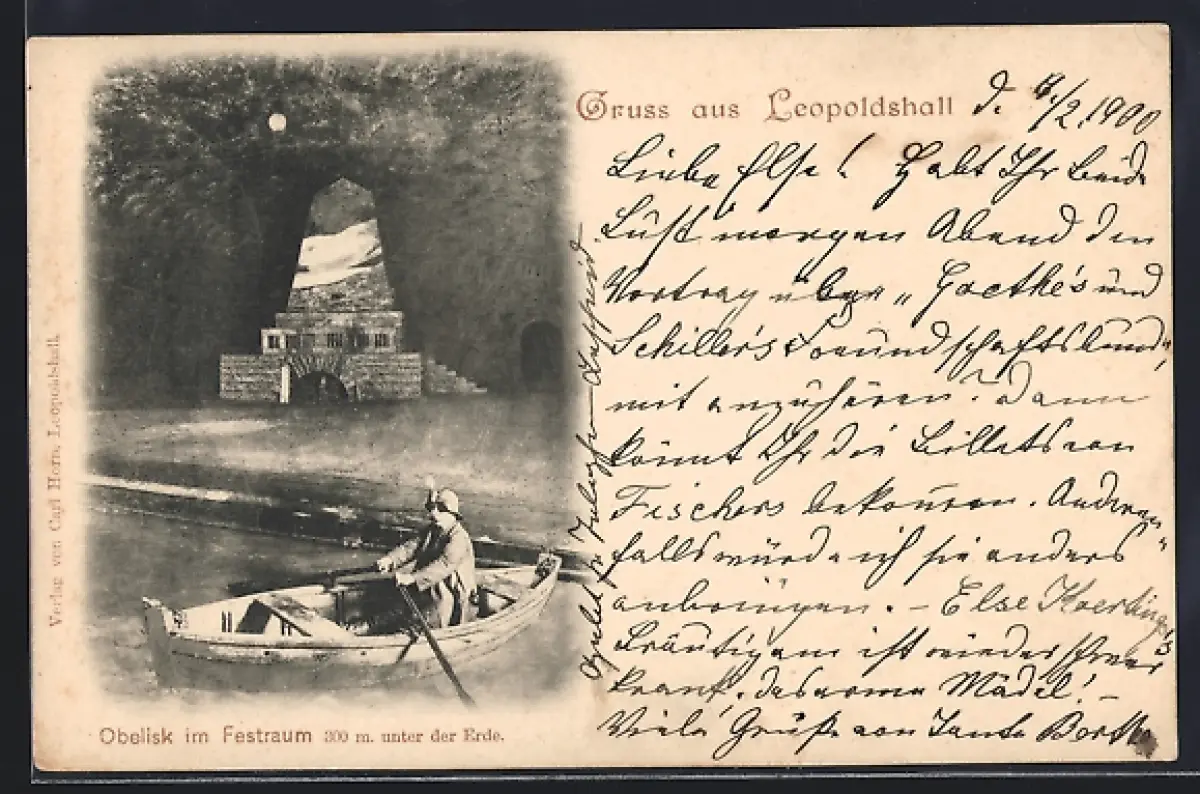 Gruss aus Leopoldshall
d. 6/2. 1900
Liebe Else! Habt Ihr beide
Lust morgen Abend den
Vortrag über „Goethe's und
Schiller's Freundschaftsbund"
mit anzuhören? Dann
könnt Ihr die Billets von
Fischers bekommen. Anderen-
falls würde ich sie anders
anbringen. – Else Koertings
Bräutigam ist wieder schwer
krank, das arme Mädel! –
Viele Grüße von Tante Berth
Verlag von Carl Horn, Leopoldshall.
Obelisk im Festraum 300 m. unter der Erde.